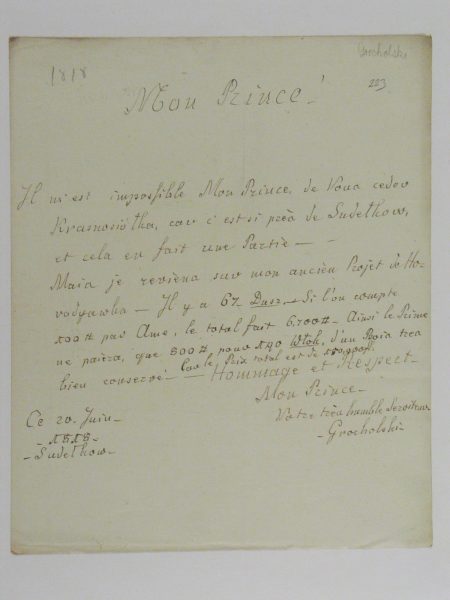 1818
Grocholski
223
Mon Prince!
Il m'est impossible Mon Prince, de Vous ceder
Krasnosiołka, car c'est si près de Sudełkow,
et cela en fait une Partie —
Mais je reviens sur mon ancien Projet de Ho-
rodyawka — Il y a 67 Dusz — Si l'on compte
100# par Ame, le total fait 6.700# — Ainsi le Prince
ne paiera, que 800# pour 140 Włok, d'un Bois très
bien conservé — le Prix total est de
Hommage et Respect —
Mon Prince —
Votre très humble Serviteur
- Grocholski -
Ce 20. Juin —
- 1818 -
- Sudełkow —